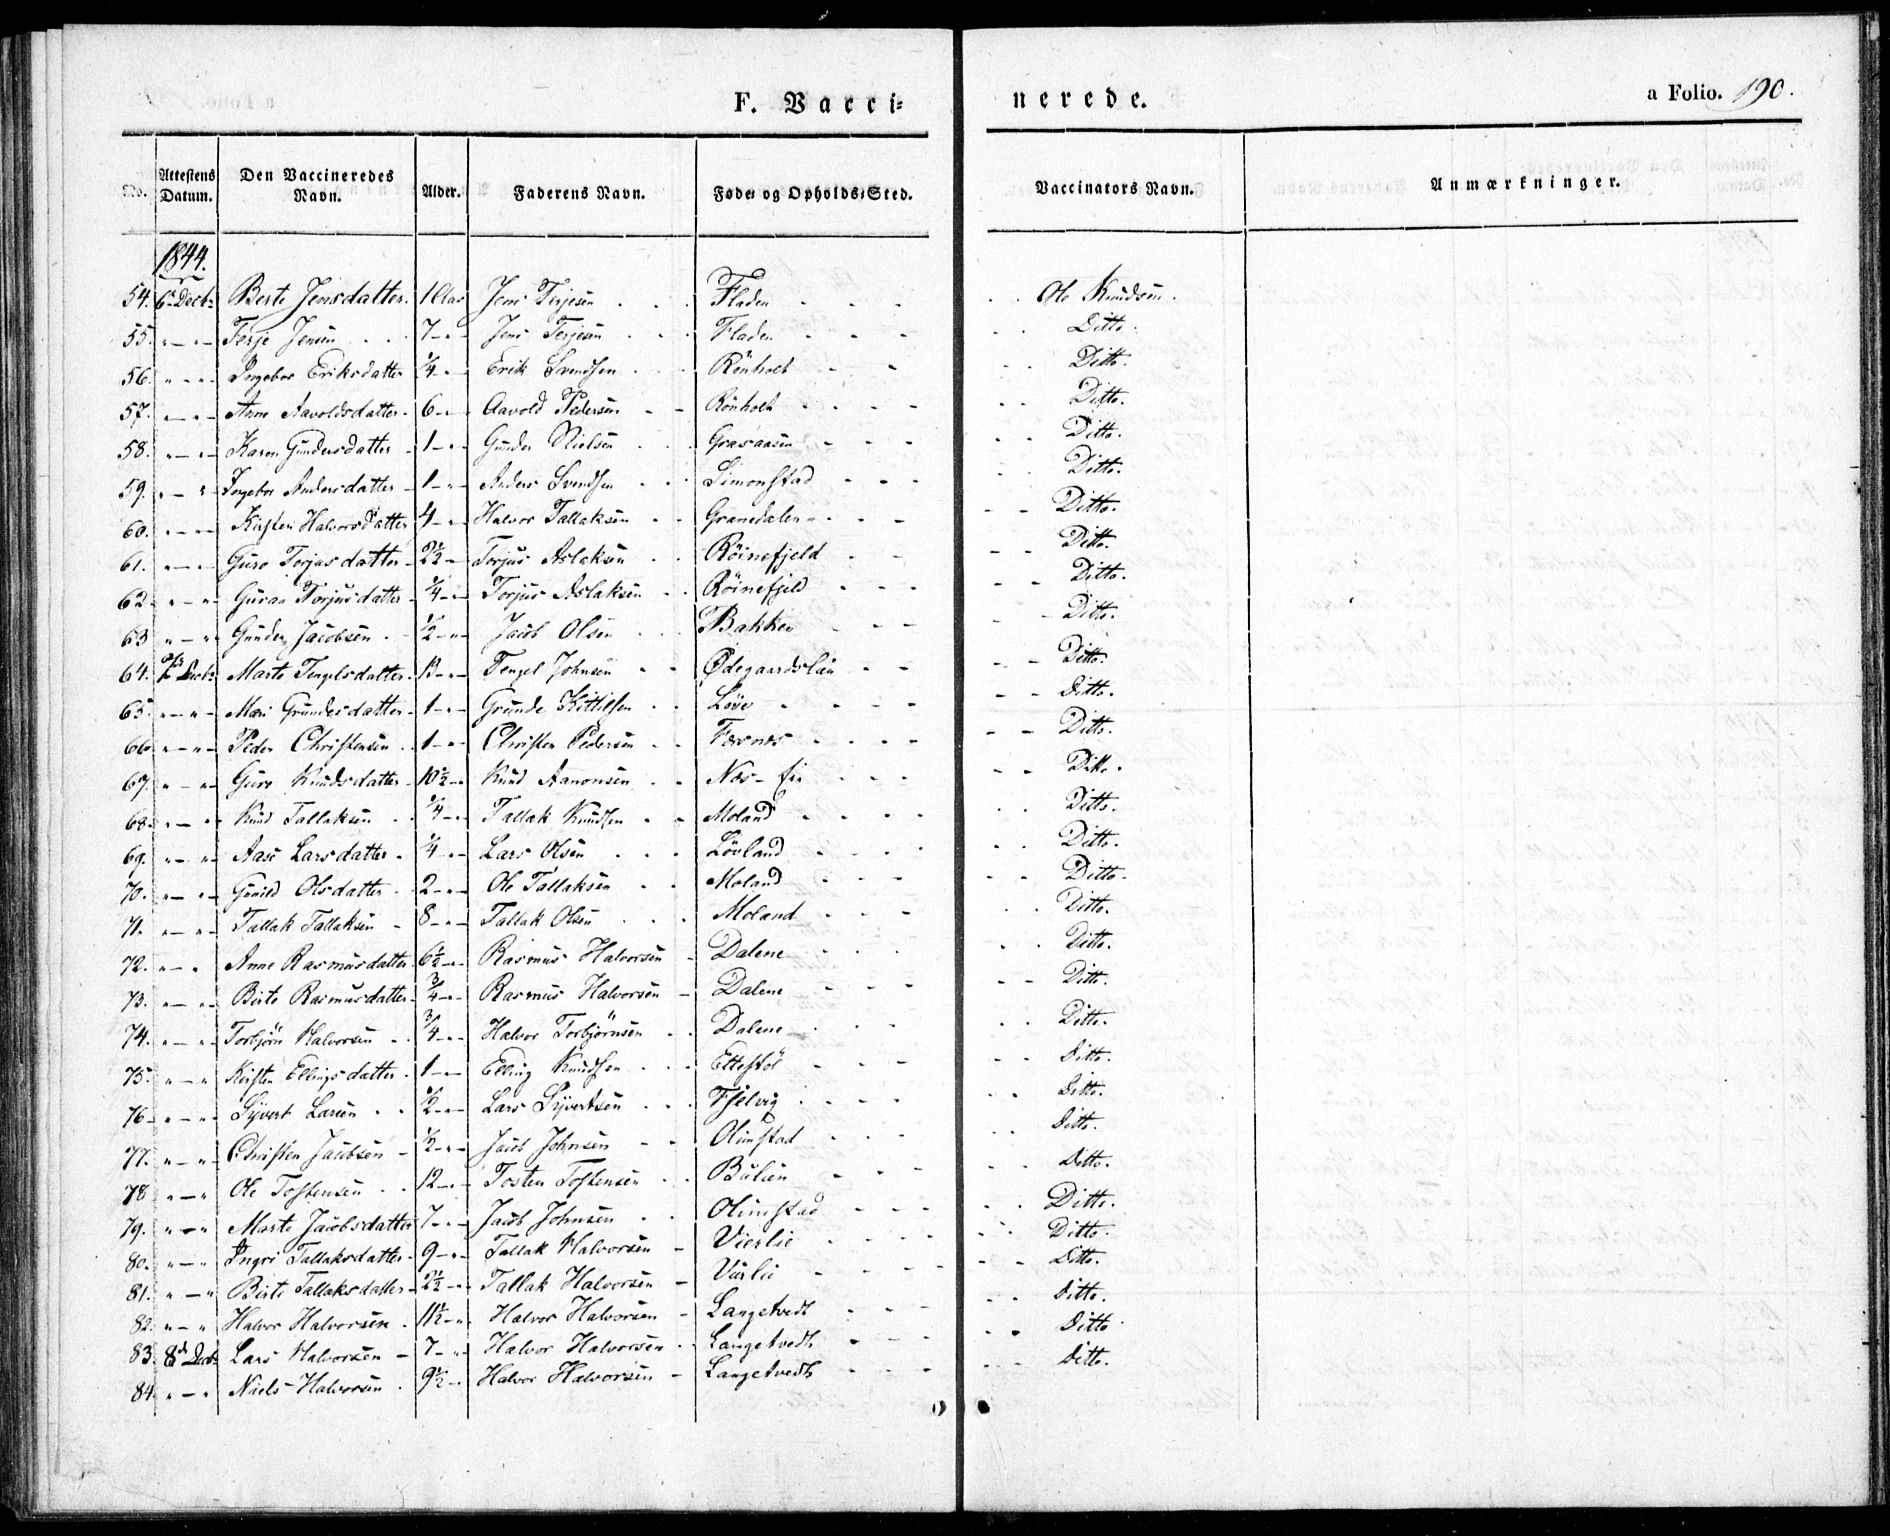 F. Vacci=
nerede.
a Folio. 190.
No. Attestens Datum. Den Vaccineredes Navn. Alder. Faderens Navn. Føde- og Opholds-Sted. Vaccinators Navn. Anmærkninger.
1844.
54. 6te Decbr Berte Jensdatter. 1 Aar Jens Terjesen Fladen Ole Knudsen.
55. " — " — Terje Jensen 7 - " - Jens Terjesen Fladen Ditto.
56. " — " — Ingebor Eriksdatter 1/4 - " - Erik Svendsen Rönholt Ditto.
57. " — " — Anne Aavoldsdatter 6 - " - Aavold Pedersen Rönholt Ditto.
58. " — " — Karen Gundersdatter 1 - " - Gunder Nielsen Grasaasen Ditto.
59. " — " — Ingebor Andersdatter 1 - " - Anders Svendsen Simonstad Ditto.
60. " — " — Kirsten Halvorsdatter 4 - " - Halvor Tallaksen Granedalen Ditto.
61. " — " — Guro Torjusdatter 2 1/2 - Torjus Aslaksen Röinefjeld Ditto.
62. " — " — Guraa Torjusdatter 1/4 - " - Torjus Aslaksen Röinefjeld Ditto.
63 " — " — Gunder Jacobsen 1/2 - " - Jacob Olsen Bakken Ditto.
64. 7de Decbr Marte Tengelsdatter 13 - " - Tengel Johnsen Ødegaardslien Ditto.
65. " — " — Mari Grundesdatter 1 - " - Grunde Kittilsen Löse Ditto.
66. " — " — Peder Christensen 1 - " - Christen Pedersen Ditto.
67. " — " — Guro Knudsdatter 10 1/2 - " Knud Aanonsen Næs- Ditto.
68. " — " — Knud Tallaksen 1/4 - " - Tallak Knudsen Moland Ditto.
69. " — " — Aase Larsdatter 1/4 - " - Lars Olsen Lövland Ditto.
70. " — " — Gunild Olsdatter 2 - " - Ole Tallaksen Moland Ditto.
71. " — " — Tallak Tallaksen 8 - " - Tallak Olsen Moland Ditto.
72. " — " Anne Rasmusdatter 6 1/2 - " - Rasmus Halvorsen Dalene Ditto.
73. " — " — Birte Rasmusdatter 3/4 - " - Rasmus Halvorsen Dalene Ditto.
74. " — " — Torbjörn Halvorsen 3/4 - " - Halvor Torbjörnsen Dalene Ditto.
75. " — " Kirsten Ellingsdatter 1 - " - Elling Knudsen Ettestöl Ditto.
76 " — " — Syvert Larsen 1/2 - " - Lars Syvertsen Fjelvig Ditto.
77. " — " — Christen Jacobsen 1/2 - " - Jacob Johnsen Olimstad Ditto.
78 " — " Ole Tostensen 12 - " - Tosten Tostensen Bülien Ditto.
79. " — " Marte Jacobsdatter 7 - " - Jacob Johnsen Olimstad Ditto.
80. " — " Ingri Tallaksdatter 9 - " - Tallak Halvorsen Vierlie Ditto.
81. " — " Birte Tallaksdatter 2 1/2 - " - Tallak Halvorsen Vierlie Ditto.
82. " — " Halvor Halvorsen 11 1/2 - " Halvor Halvorsen Langetvedt Ditto.
83. 8de Decbr Lars Halvorsen 7 - " Halvor Halvorsen Langetvedt Ditto
84. " — " Niels Halvorsen 9 1/2 - " Halvor Halvorsen Langetvedt Ditto.